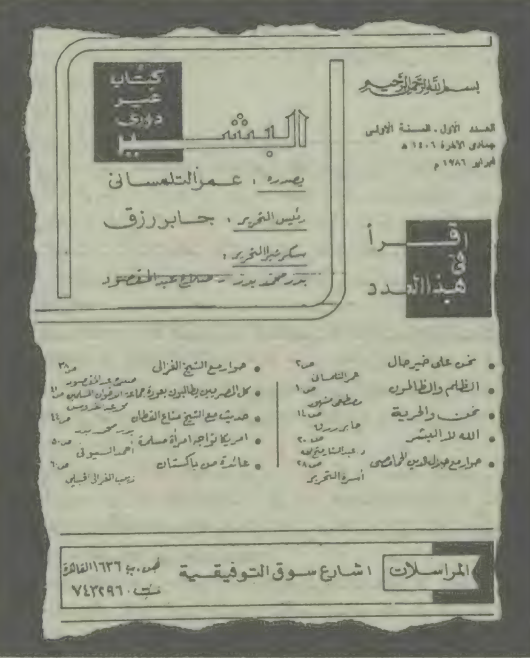 بسم الله الرحمن الرحيم
العدد الأول . السنة الأولى
جمادى الآخرة ١٤٠٦ ه
فبراير ١٩٨٦ م
كتاب
غير
دورى
البشير
يصدره : عمر التلمسانى
رئيس التحرير : جابر رزق
سكرتير التحرير :
بدر محمد بدر - صلاح عبد المقصود
إقرأ
فى
هذا العدد
نحن على خير حال ص٢
عمر التلمسانى
الظلم والظالمون
مصطفى مشهور
نحن والحرية ص١٤
جابر رزق
الله لا البشر ص٢٠
د. عبد الستار فتح الله
حوار مع جلال الدين الحمامصى ص٢٨
أسرة التحرير
حوار مع الشيخ الغزالى ص٣٨
صلاح عبد المقصود
كل المصريين يطالبون بعودة جماعة الإخوان المسلمين ص٤٠
محمد عبد القدوس
حديث مع الشيخ مناع القطان ص٤٤
بدر محمد بدر
امريكا تواجه امرأة مسلمة ص٥٠
أحمد السيوفى
عائدة من باكستان ص٦٠
زينب الغزالى الجبيلى
المراسلات
١ شارع سوق التوفيقية
ص.ب ١٦٣٦ القاهرة
ت ٧٤٣٢٩٦٠